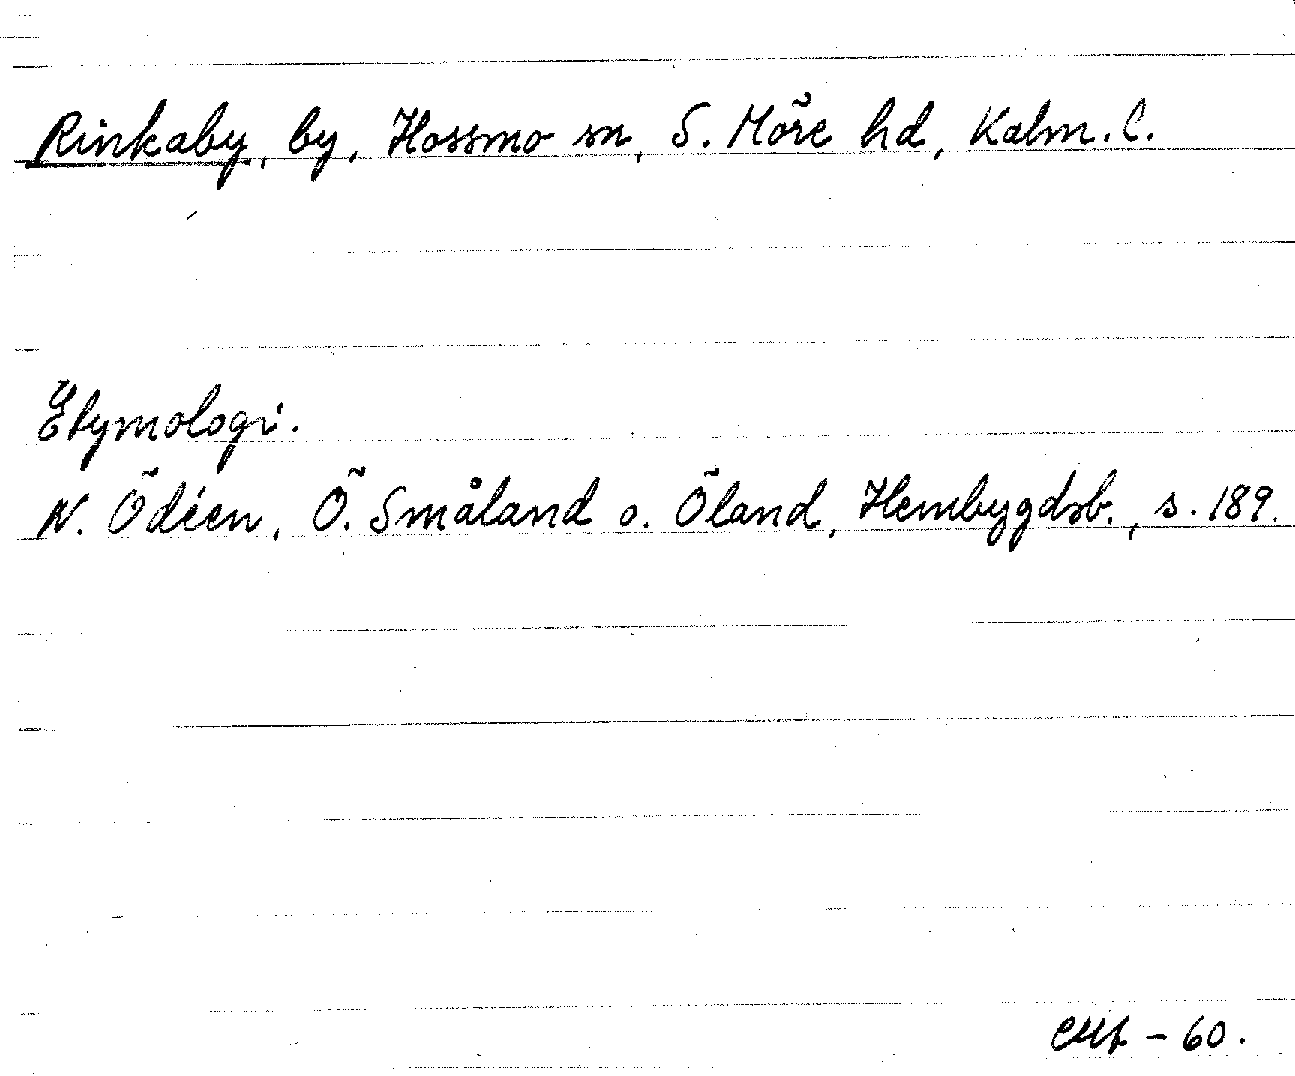 Rinkaby, by, Hossmo sn, S. Möre hd, Kalm. l.
Etymologi.
N. Ödéen, Ö. Småland o. Öland, Hembygdsb., s. 189.
- 60.